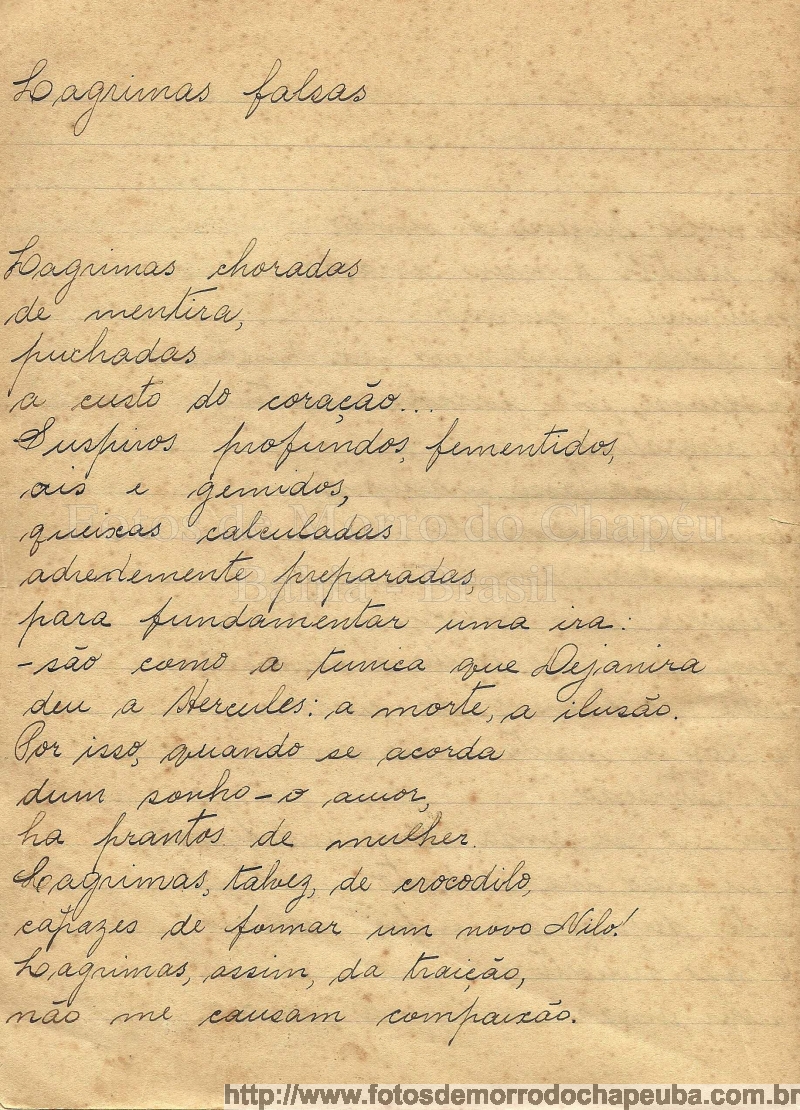 Lagrimas falsas
Lagrimas choradas
de mentira,
puchadas
a custo do coração...
Suspiros profundos, fementidos,
ais e gemidos,
queixas calculadas
Fotos de Morro do Chapéu
adredemente preparadas,
Bahia - Brasil
para fundamentar uma ira:
-são como a tunica que Dejanira
deu a Hercules: a morte, a ilusão.
Por isso, quando se acorda
dum sonho - o amor,
ha prantos de mulher.
Lagrimas, talvez, de crocodilo,
capazes de formar um novo Nilo!
Lagrimas, assim, da traição,
não me causam compaixão.
http://www.fotosdemorrodochapeuba.com.br